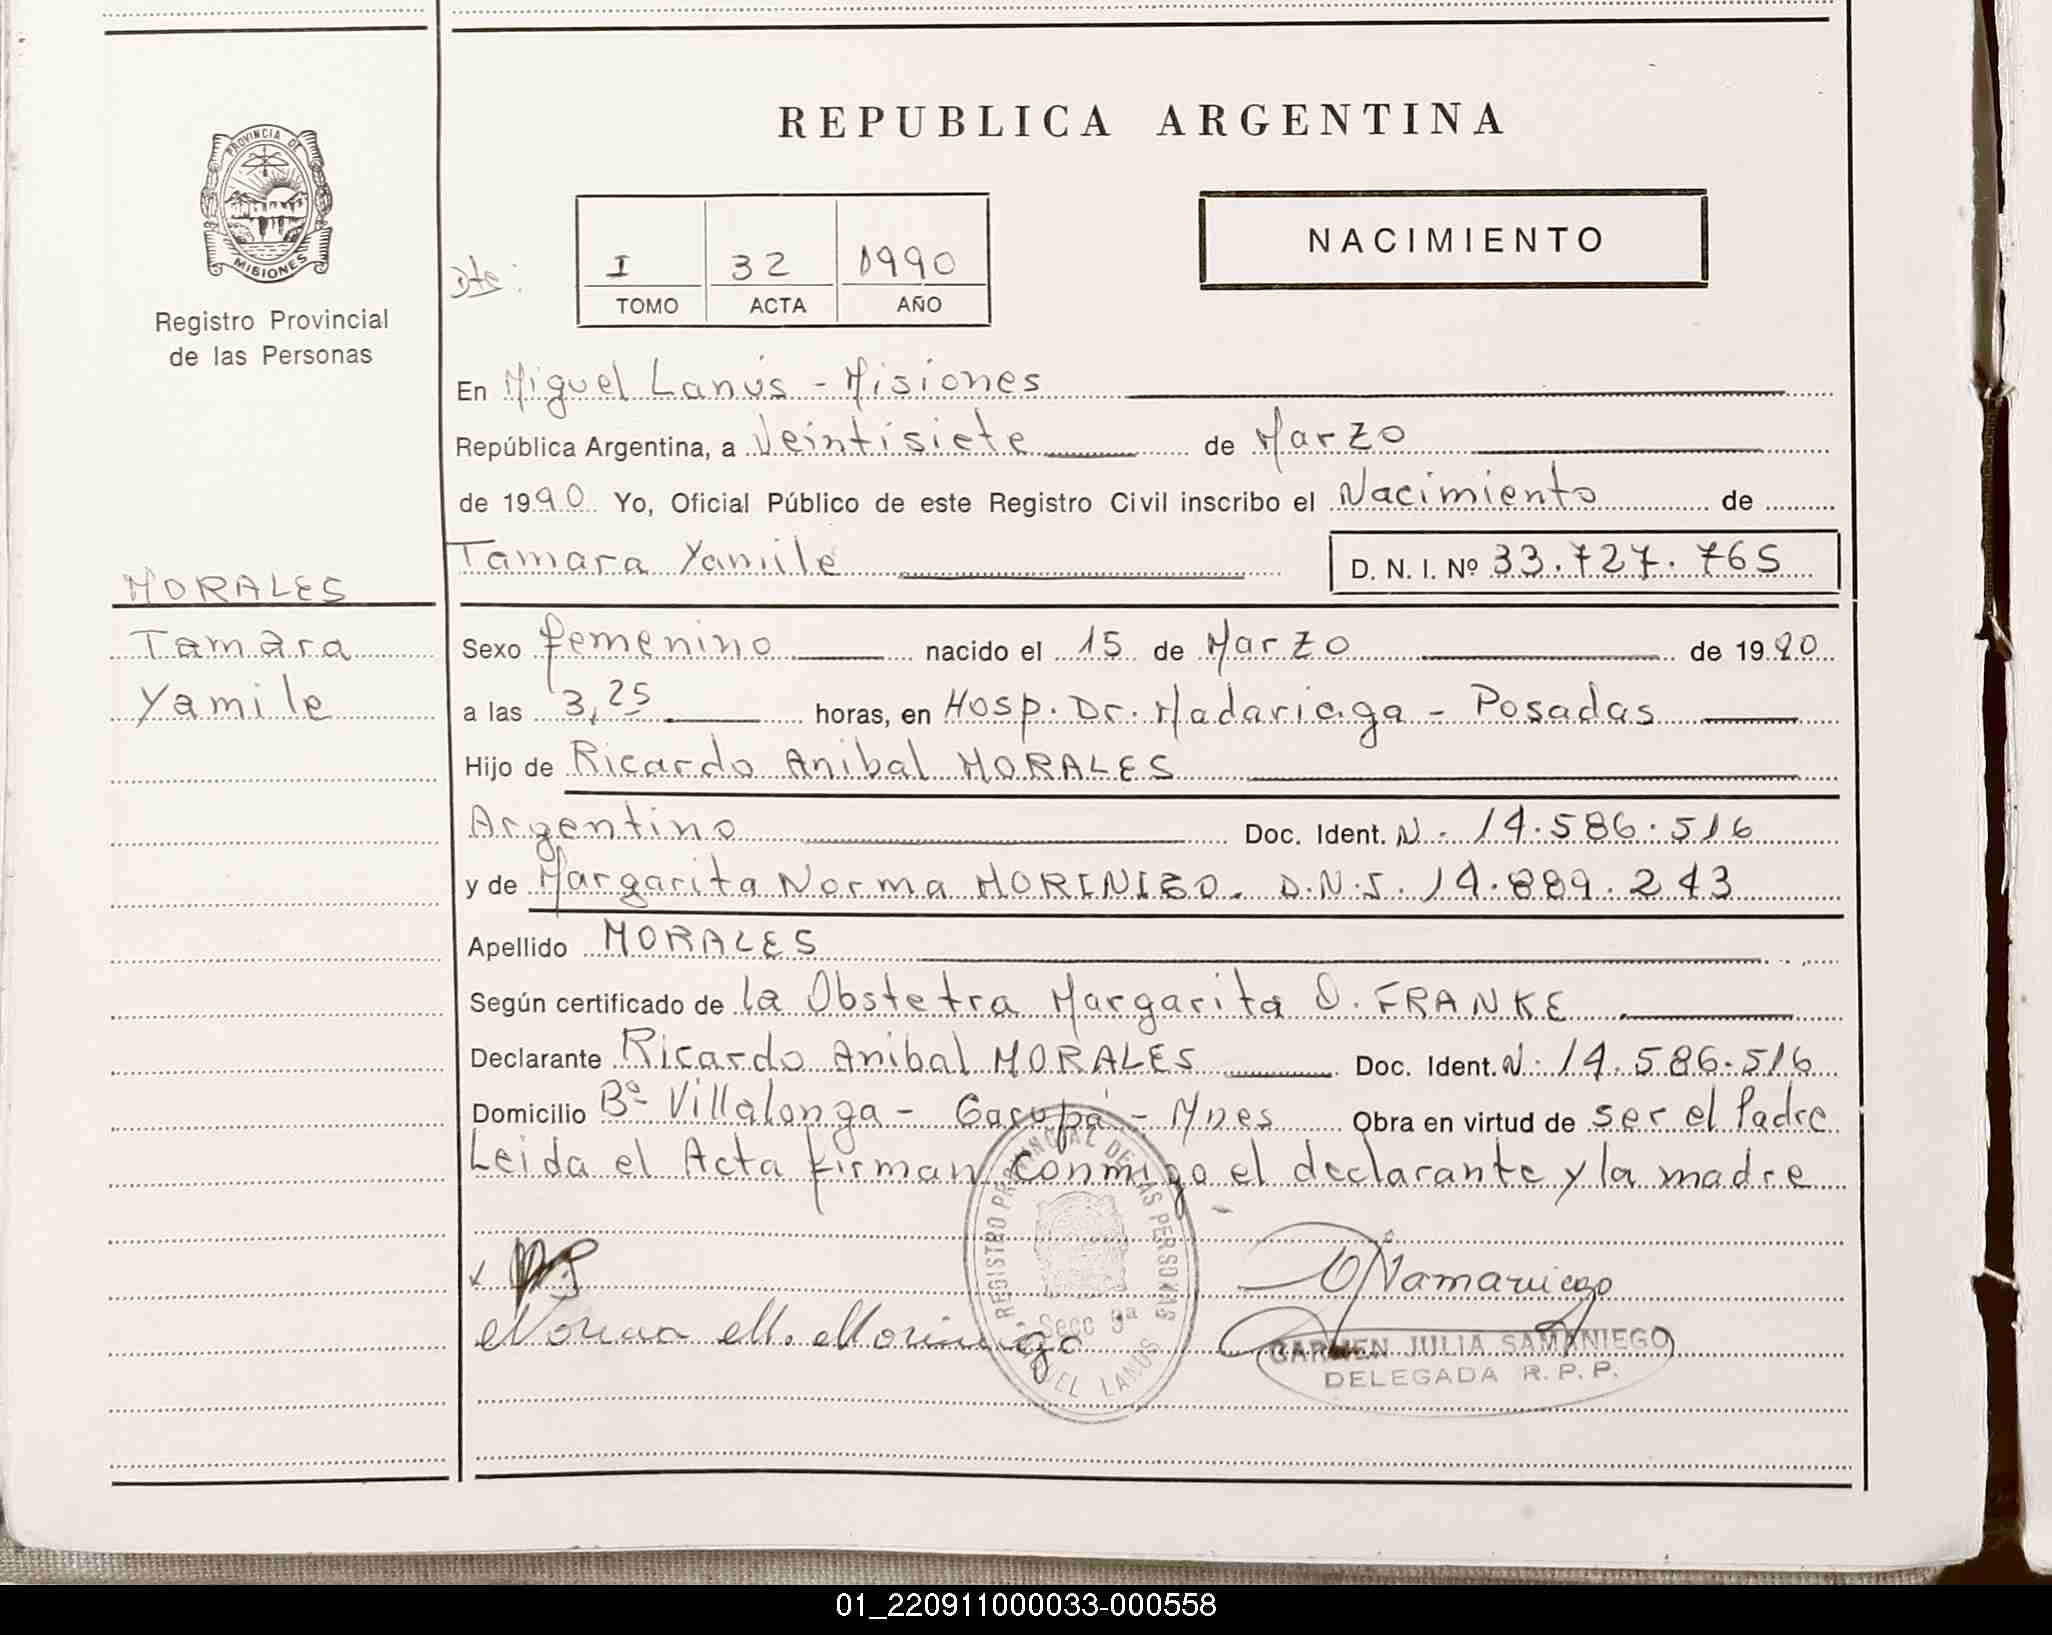 REPUBLICA ARGENTINA
PROVINCIA DE
MISIONES
Registro Provincial
de las Personas
Dto:
I 32 1990
TOMO ACTA AÑO
NACIMIENTO
En Miguel Lanús - Misiones
República Argentina, a Veintisiete de Marzo
de 1990 Yo, Oficial Público de este Registro Civil inscribo el Nacimiento de
Tamara Yamile D. N. I. Nº 33.727.765
MORALES
Tamara
Yamile
Sexo femenino nacido el 15 de Marzo de 1990
a las 3,25 horas, en Hosp. Dr. Madariaga - Posadas
Hijo de Ricardo Anibal MORALES
Argentino Doc. Ident. N. 14.586.516
y de Margarita Norma MORINIGO. D.N.I. 14.889.243
Apellido MORALES
Según certificado de la Obstetra Margarita O. FRANKE
Declarante Ricardo Anibal MORALES Doc. Ident. N. 14.586.516
Domicilio Bº Villalonga - Garupá - Mnes Obra en virtud de ser el Padre
Leida el Acta firman conmigo el declarante y la madre
REGISTRO PROVINCIAL DE LAS PERSONAS
Secc 3ª
MIGUEL LANUS
Norma M. Morinigo
CARMEN JULIA SAMANIEGO
DELEGADA R.P.P.
01_220911000033-000558